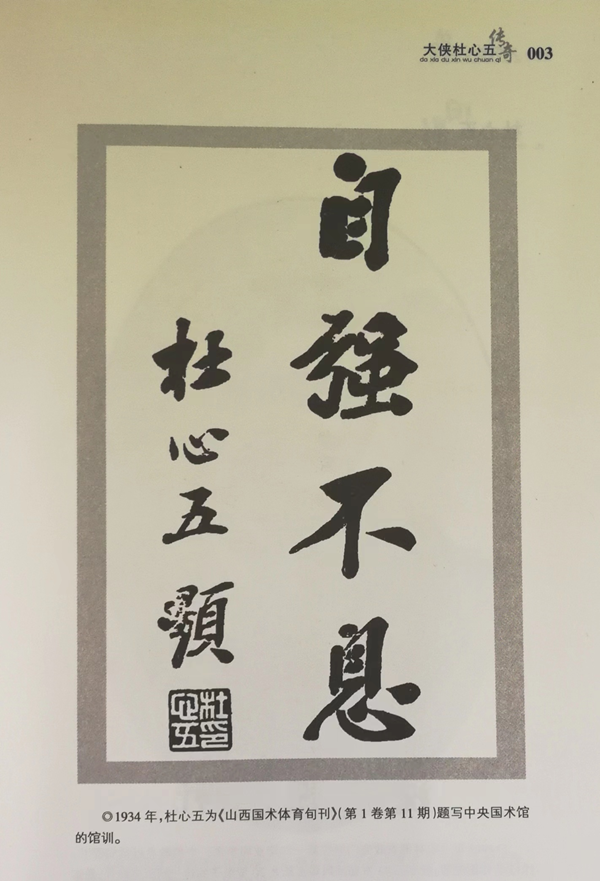 大侠杜心五传奇 003
da xia du xin wu chuan qi
自强不息
杜心五题
杜心五印
◎1934 年,杜心五为《山西国术体育旬刊》(第 1 卷第 11 期)题写中央国术馆
的馆训。